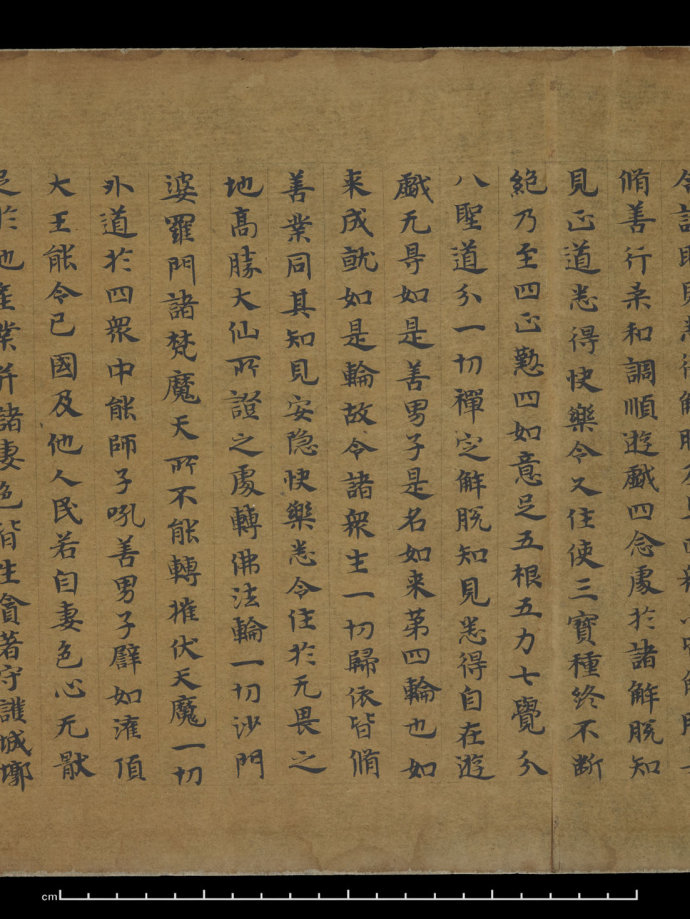 脩善行柔和調順遊戲四念處於諸解脫知
見正道悉得快樂令又住使三寶種終不斷
絕乃至四正懃四如意足五根五力七覺分
八聖道分一切禪定解脫知見悉得自在遊
戲无㝵如是善男子是名如来苐四輪也如
来成就如是輪故令諸衆生一切歸依皆脩
善業同其知見安隐快樂悉令住於无畏之
地高勝大仙所證之處轉佛法輪一切沙門
婆羅門諸梵魔天所不能轉摧伏天魔一切
外道於四衆中能師子吼善男子譬如灌頂
大王能令己國及他人民若自妻色心无猒
足於他產業并諸妻色皆生貪著守護城墎